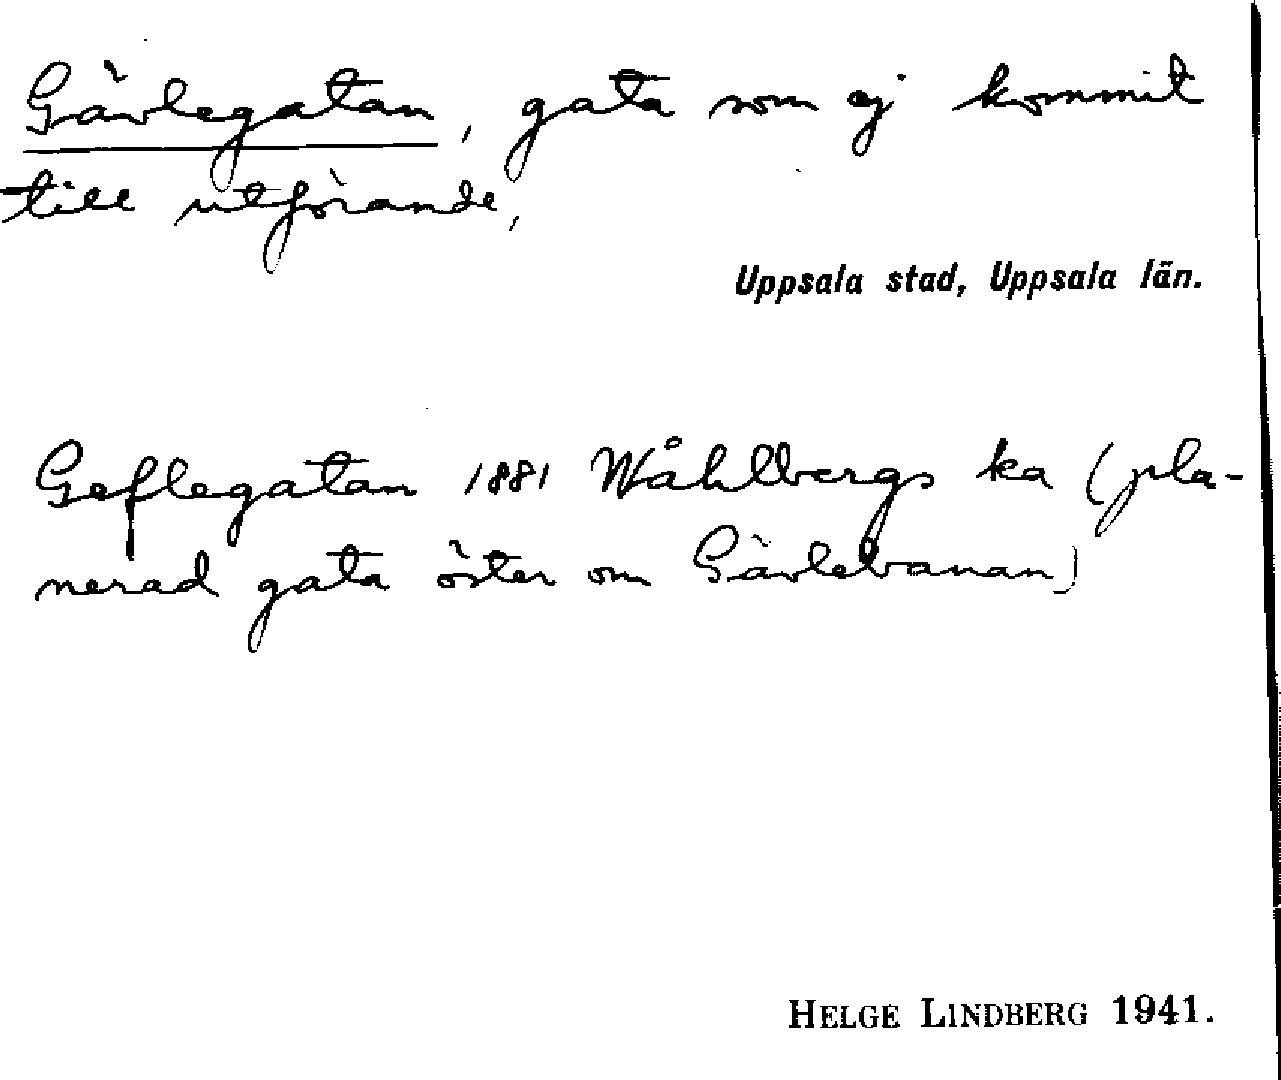 Gävlegatan, gata som ej kommit
till utförande,
Uppsala stad, Uppsala län.
Geflegatan 1881 Wåhlbergs ka (pla-
nerad gata öster om Gävlebanan)
HELGE LINDBERG 1941.